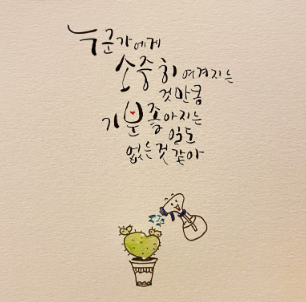 누군가에게
소중히 여겨지는
것만큼
기분 좋아지는
일도
없는 것 같아